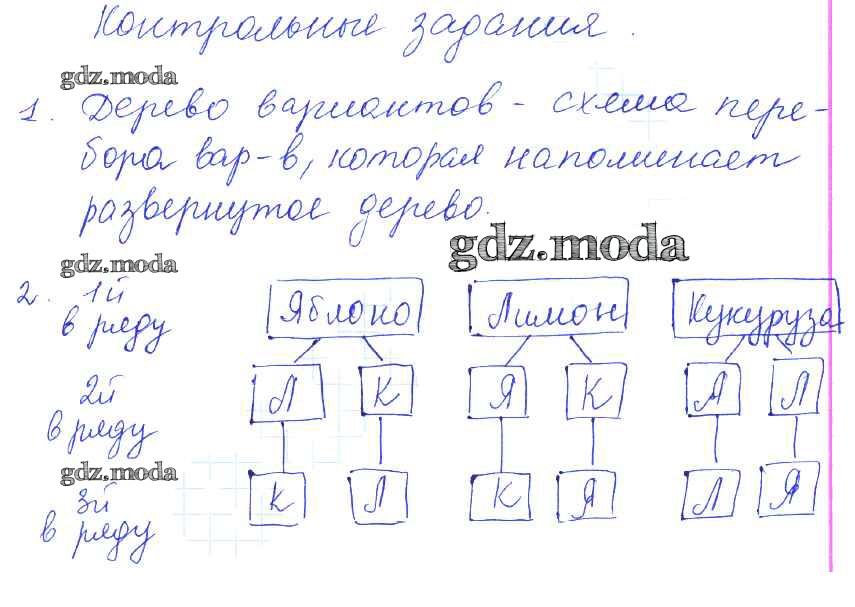 Контрольные задания.
gdz.moda
1. Дерево вариантов - схема пере-
бора вар-в, которая напоминает
развернутое дерево.
gdz.moda
gdz.moda
2. 1й
в ряду
Яблоко Лимон Кукуруза
2й
в ряду
Л К Я К А Л
gdz.moda
3й
в ряду
К Л К Я Л Я